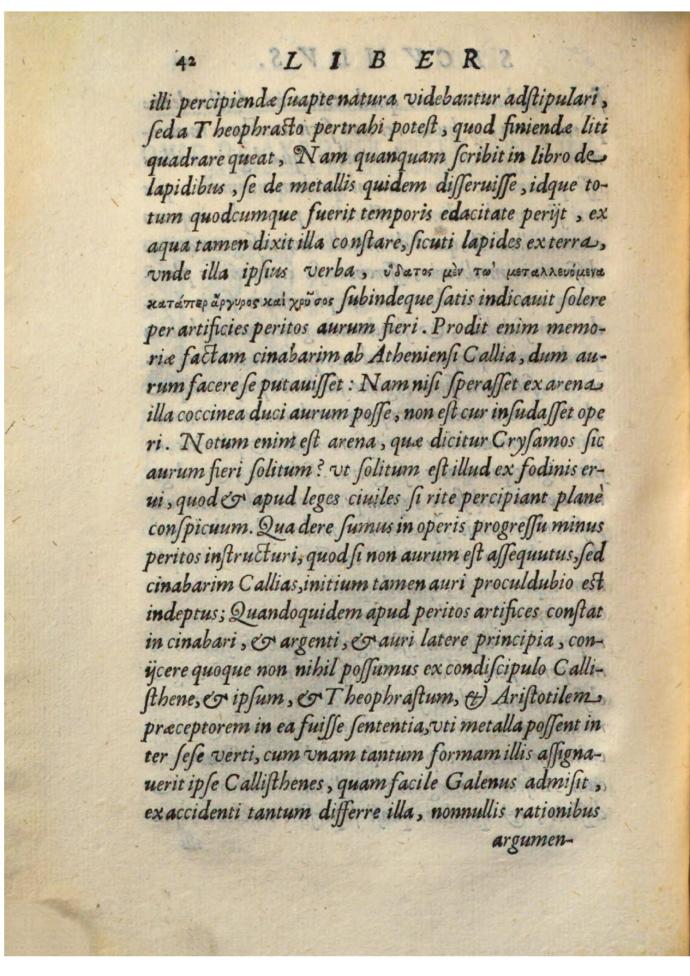 42 LIBER
illi percipiendæ suapte natura videbantur adstipulari,
sed a Theophrasto pertrahi potest, quod finiendæ liti
quadrare queat, Nam quanquam scribit in libro de
lapidibus, se de metallis quidem disseruisse, idque to-
tum quodcumque fuerit temporis edacitate perijt, ex
aqua tamen dixit illa constare, sicuti lapides ex terra,
vnde illa ipsius verba, ὕδατος μὲν τω' μεταλλευόμενα
κατάπερ ἄργυρος καὶ χρῦσος subindeque satis indicauit solere
per artificies peritos aurum fieri. Prodit enim memo-
riæ factam cinabarim ab Atheniensi Callia, dum au-
rum facere se putauisset: Nam nisi sperasset ex arena
illa coccinea duci aurum posse, non est cur insudasset ope
ri. Notum enim est arena, quæ dicitur Crysamos sic
aurum fieri solitum? vt solitum est illud ex fodinis er-
ui, quod & apud leges ciuiles si rite percipiant planè
conspicuum. Qua de re sumus in operis progressu minus
peritos instructuri, quod si non aurum est assequutus, sed
cinabarim Callias, initium tamen auri proculdubio est
indeptus; Quandoquidem apud peritos artifices constat
in cinabari, & argenti, & auri latere principia, con-
ijcere quoque non nihil possumus ex condiscipulo Calli-
sthene, & ipsum, & Theophrastum, & Aristotilem
præceptorem in ea fuisse sententia, vti metalla possent in
ter sese verti, cum vnam tantum formam illis assigna-
uerit ipse Callisthenes, quam facile Galenus admisit,
ex accidenti tantum differre illa, nonnullis rationibus
argumen-